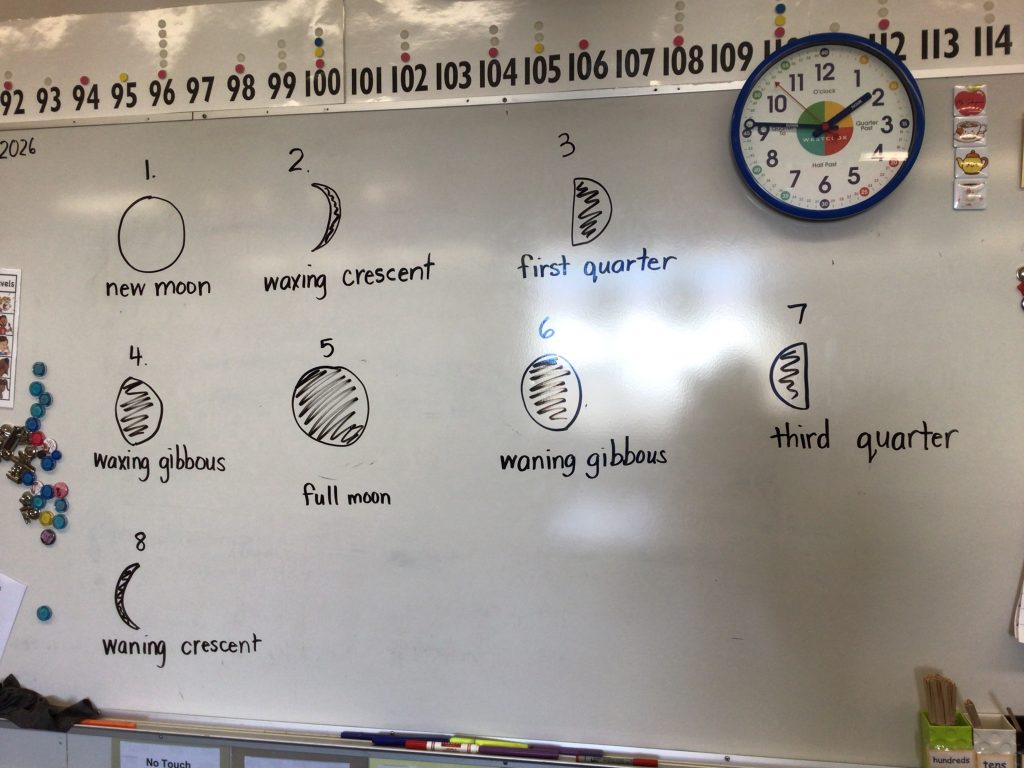 92 93 94 95 96 97 98 99 100 101 102 103 104 105 106 107 108 109 112 113 114
2026
1.
new moon
2.
waxing crescent
3
first quarter
4.
waxing gibbous
5
full moon
6
waning gibbous
7
third quarter
8
waning crescent
12
1
2
3
4
5
6
7
8
9
10
11
O'clock
Quarter Past
Half Past
WESTCLOX
No Touch
hundreds
tens